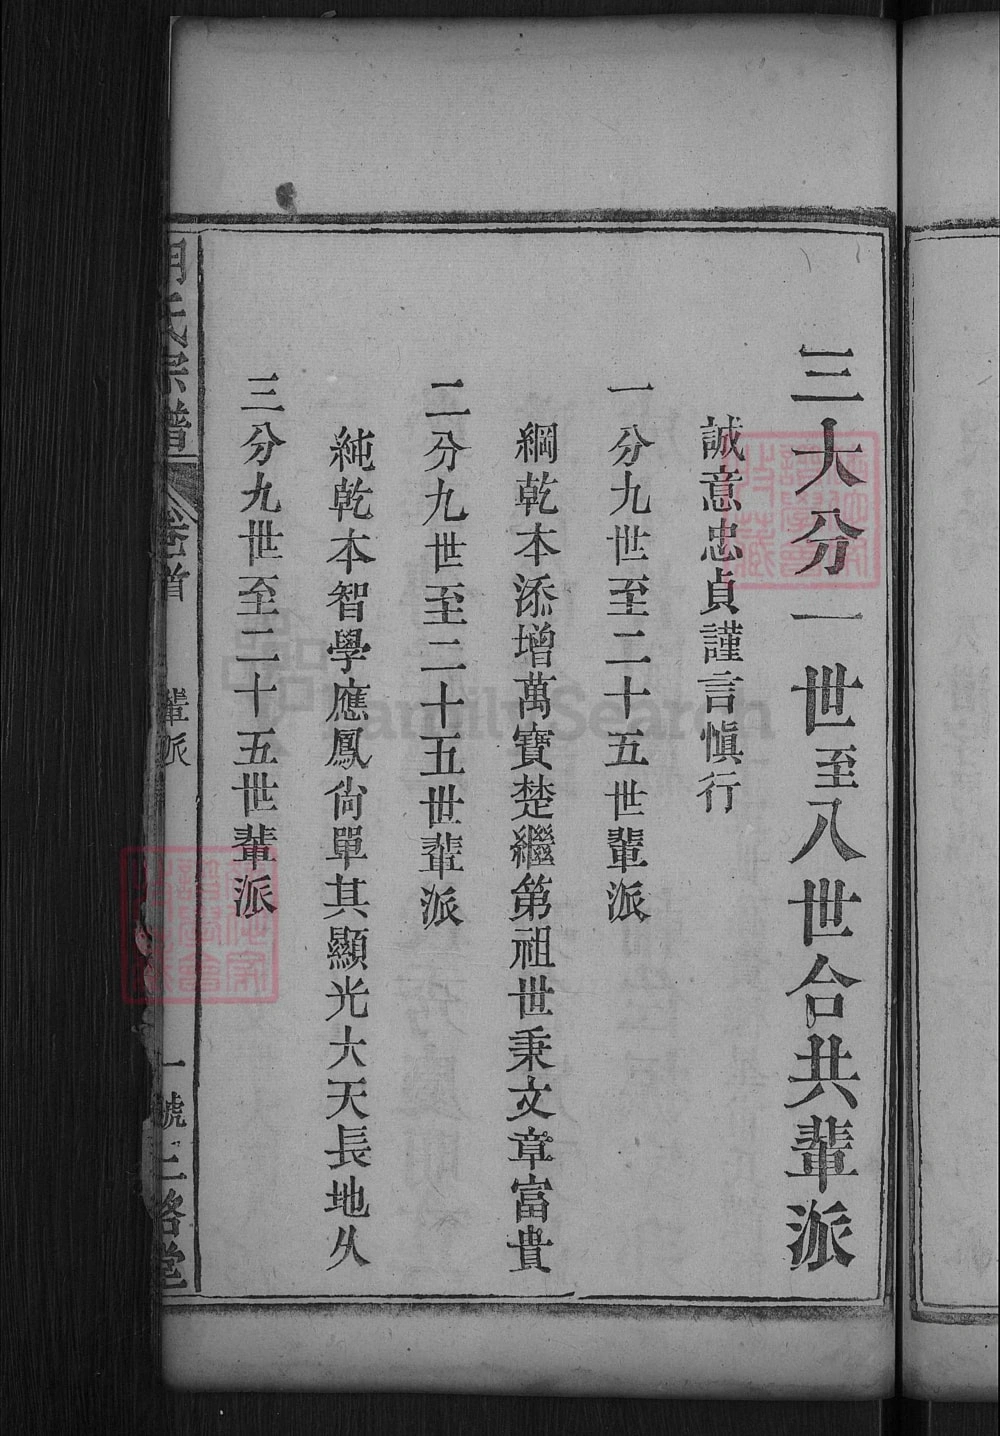 三大分一世至八世合共輩派
誠意忠貞謹言慎行
一分九世至二十五世輩派
綱乾本添增萬寶楚繼第祖世秉文章富貴
二分九世至二十五世輩派
純乾本智學應鳳尙單其顯光大天長地久
三分九世至二十五世輩派
氏宗譜
卷首
輩派
一號
三畧堂
FamilySearch